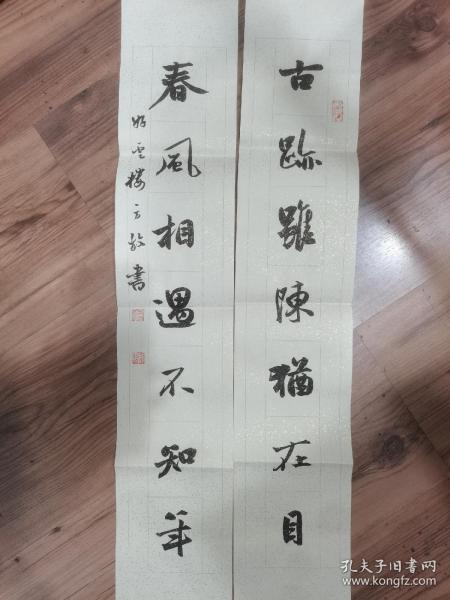 古跡雖陳猶在目
春風相遇不知年
樓
書
孔夫子旧书网
www.kongfz.com